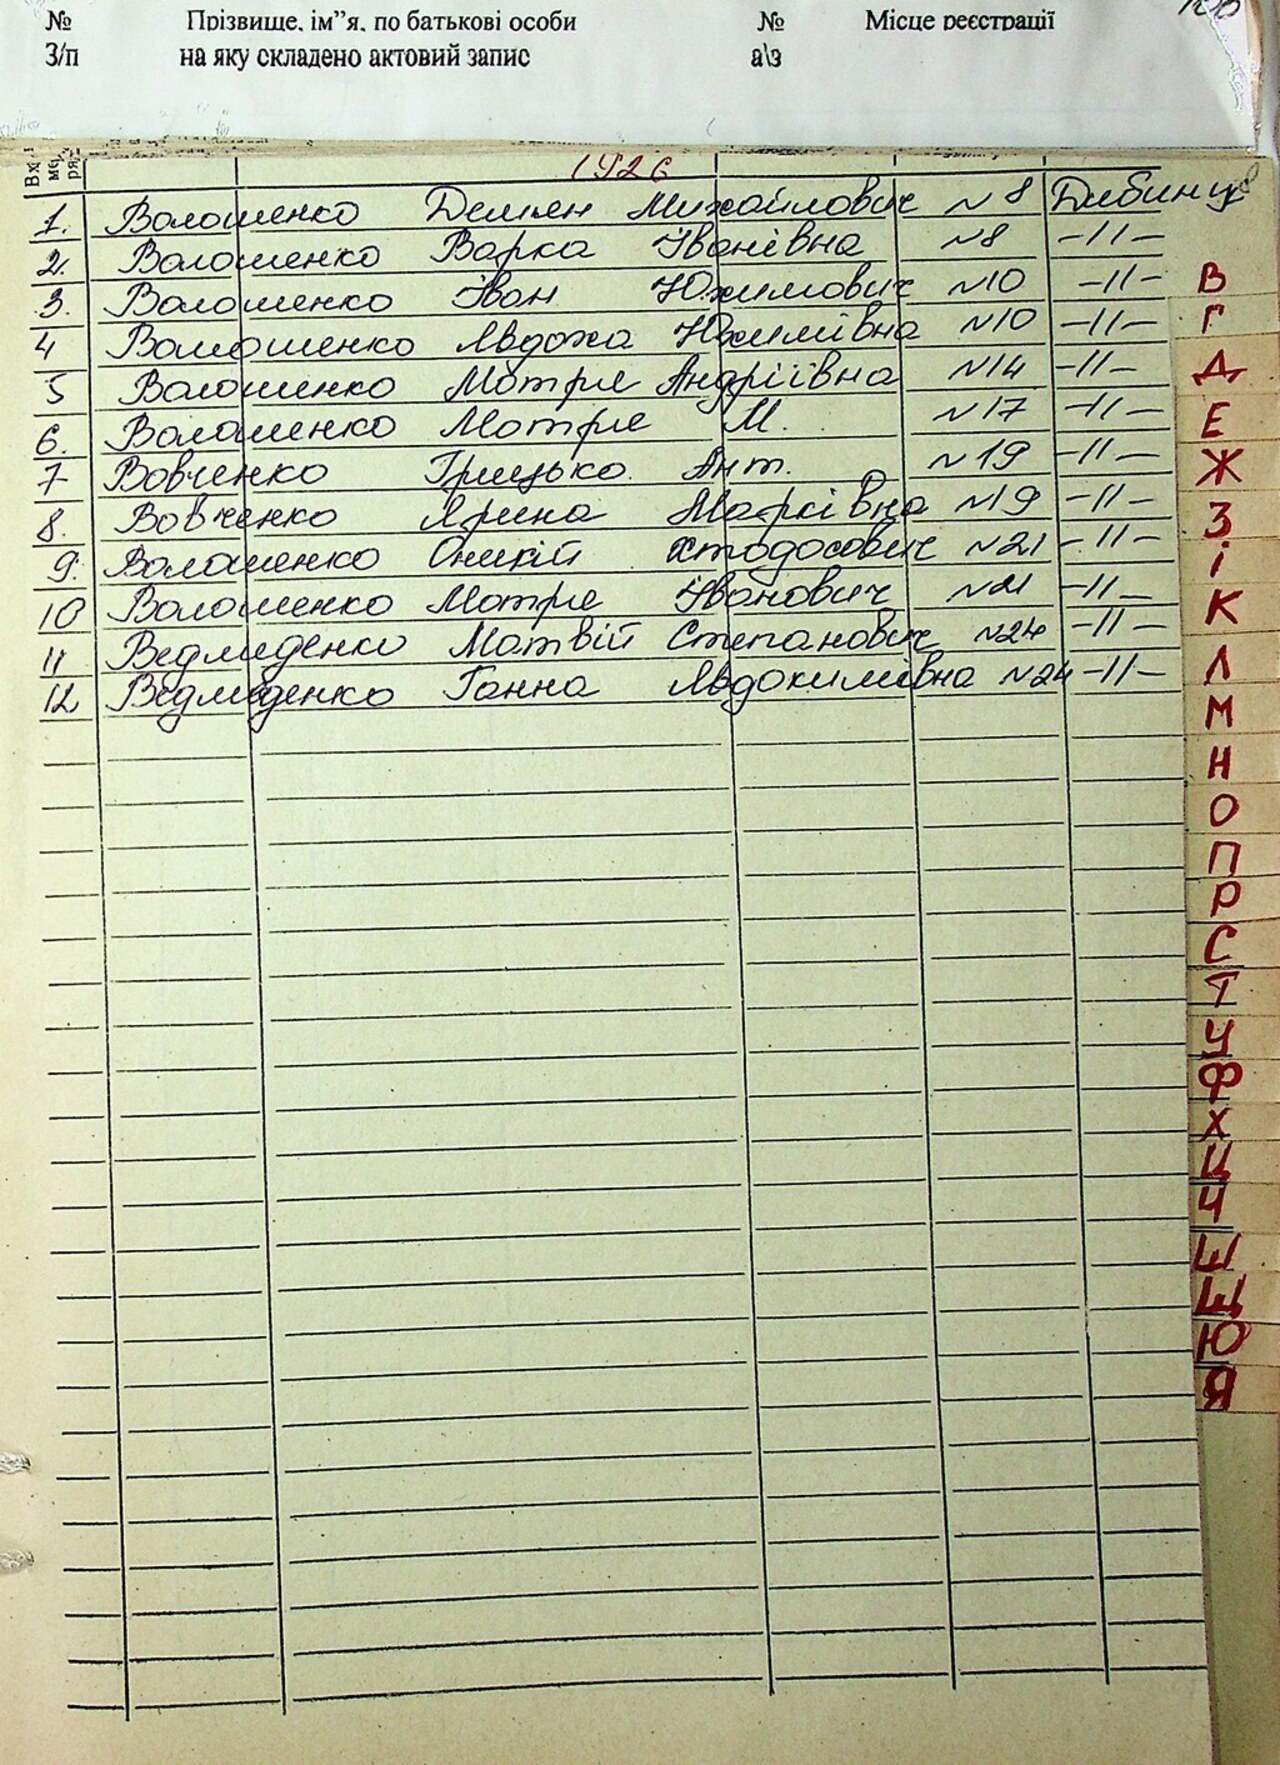 № Прізвище, ім”я, по батькові особи № Місце реєстрації
З/п на яку складено актовий запис а\з
1926
1. Волошенко Демьян Михайлович №8 Дибинці
2. Волошенко Варка Іванівна №8 -11-
3. Волошенко Іван Юхимович №10 -11-
4 Волошенко Явдоха Юхимівна №10 -11-
5 Волошенко Мотря Андріївна №14 -11-
6. Волошенко Мотря М. №17 -11-
7 Вовченко Грицько. Ант. №19 -11-
8. Вовченко Ярина Марківна №19 -11-
9. Волошенко Оникій Хтодосович №21 -11-
10 Волошенко Мотря Іванович №21 -11-
11 Ведмеденко Матвій Степанович №24 -11-
12 Ведмеденко Ганна Явдокимівна №24 -11-
В
Г
Д
Е
Ж
З
І
К
Л
М
Н
О
П
Р
С
Т
У
Ф
Х
Ц
Ч
Ш
Щ
Ю
Я